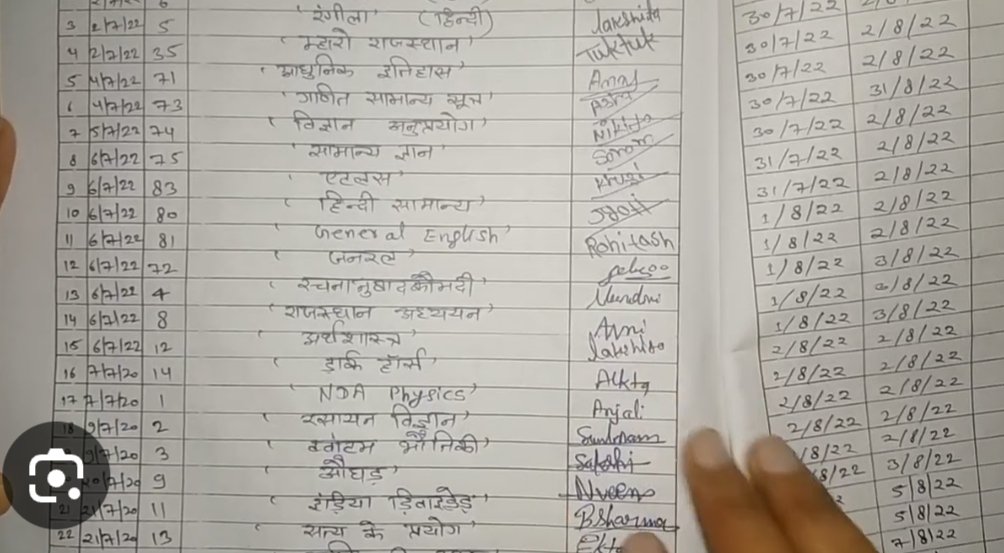 3 2/7/22 5 'रंगीला' (हिन्दी) Lakshita 30/7/22 2/8/22
4 2/7/22 35 'म्हारो राजस्थान' Tuktuk 30/7/22 2/8/22
5 4/7/22 71 'आधुनिक इतिहास' 30/7/22 2/8/22
6 4/7/22 73 'गणित सामान्य सूत्र' 30/7/22 31/8/22
7 5/7/22 74 'विज्ञान अनुप्रयोग' Nikita 30/7/22 2/8/22
8 6/7/22 75 'सामान्य ज्ञान' Sonam 31/7/22 2/8/22
9 6/7/22 83 'एटलस' Khushi 31/7/22 2/8/22
10 6/7/22 80 'हिन्दी सामान्य' Jyoti 1/8/22 2/8/22
11 6/7/22 81 'General English' Rohitash 1/8/22 2/8/22
12 6/7/22 72 'जनरल' 1/8/22 3/8/22
13 6/7/22 4 'रचनानुवादकौमदी' 1/8/22 2/8/22
14 6/7/22 8 'राजस्थान अध्ययन' Avni 1/8/22 3/8/22
15 6/7/22 12 'अर्थशास्त्र' Lakshita 2/8/22 2/8/22
16 7/7/20 14 'डार्क हॉर्स' Alkta 2/8/22 2/8/22
17 7/7/20 1 'NDA Physics' Anjali 2/8/22 2/8/22
18 9/7/20 2 'रसायन विज्ञान' 2/8/22 2/8/22
9/7/20 3 'क्वांटम भौतिकी' Sakshi /8/22 2/8/22
20/7/20 9 'औघड़' Naveen 8/22 3/8/22
21 21/7/20 11 'इंडिया डिवाइडेड' B.Sharma 5/8/22
22 21/7/20 13 'सत्य के प्रयोग' Ekta 5/8/22
7/8/22